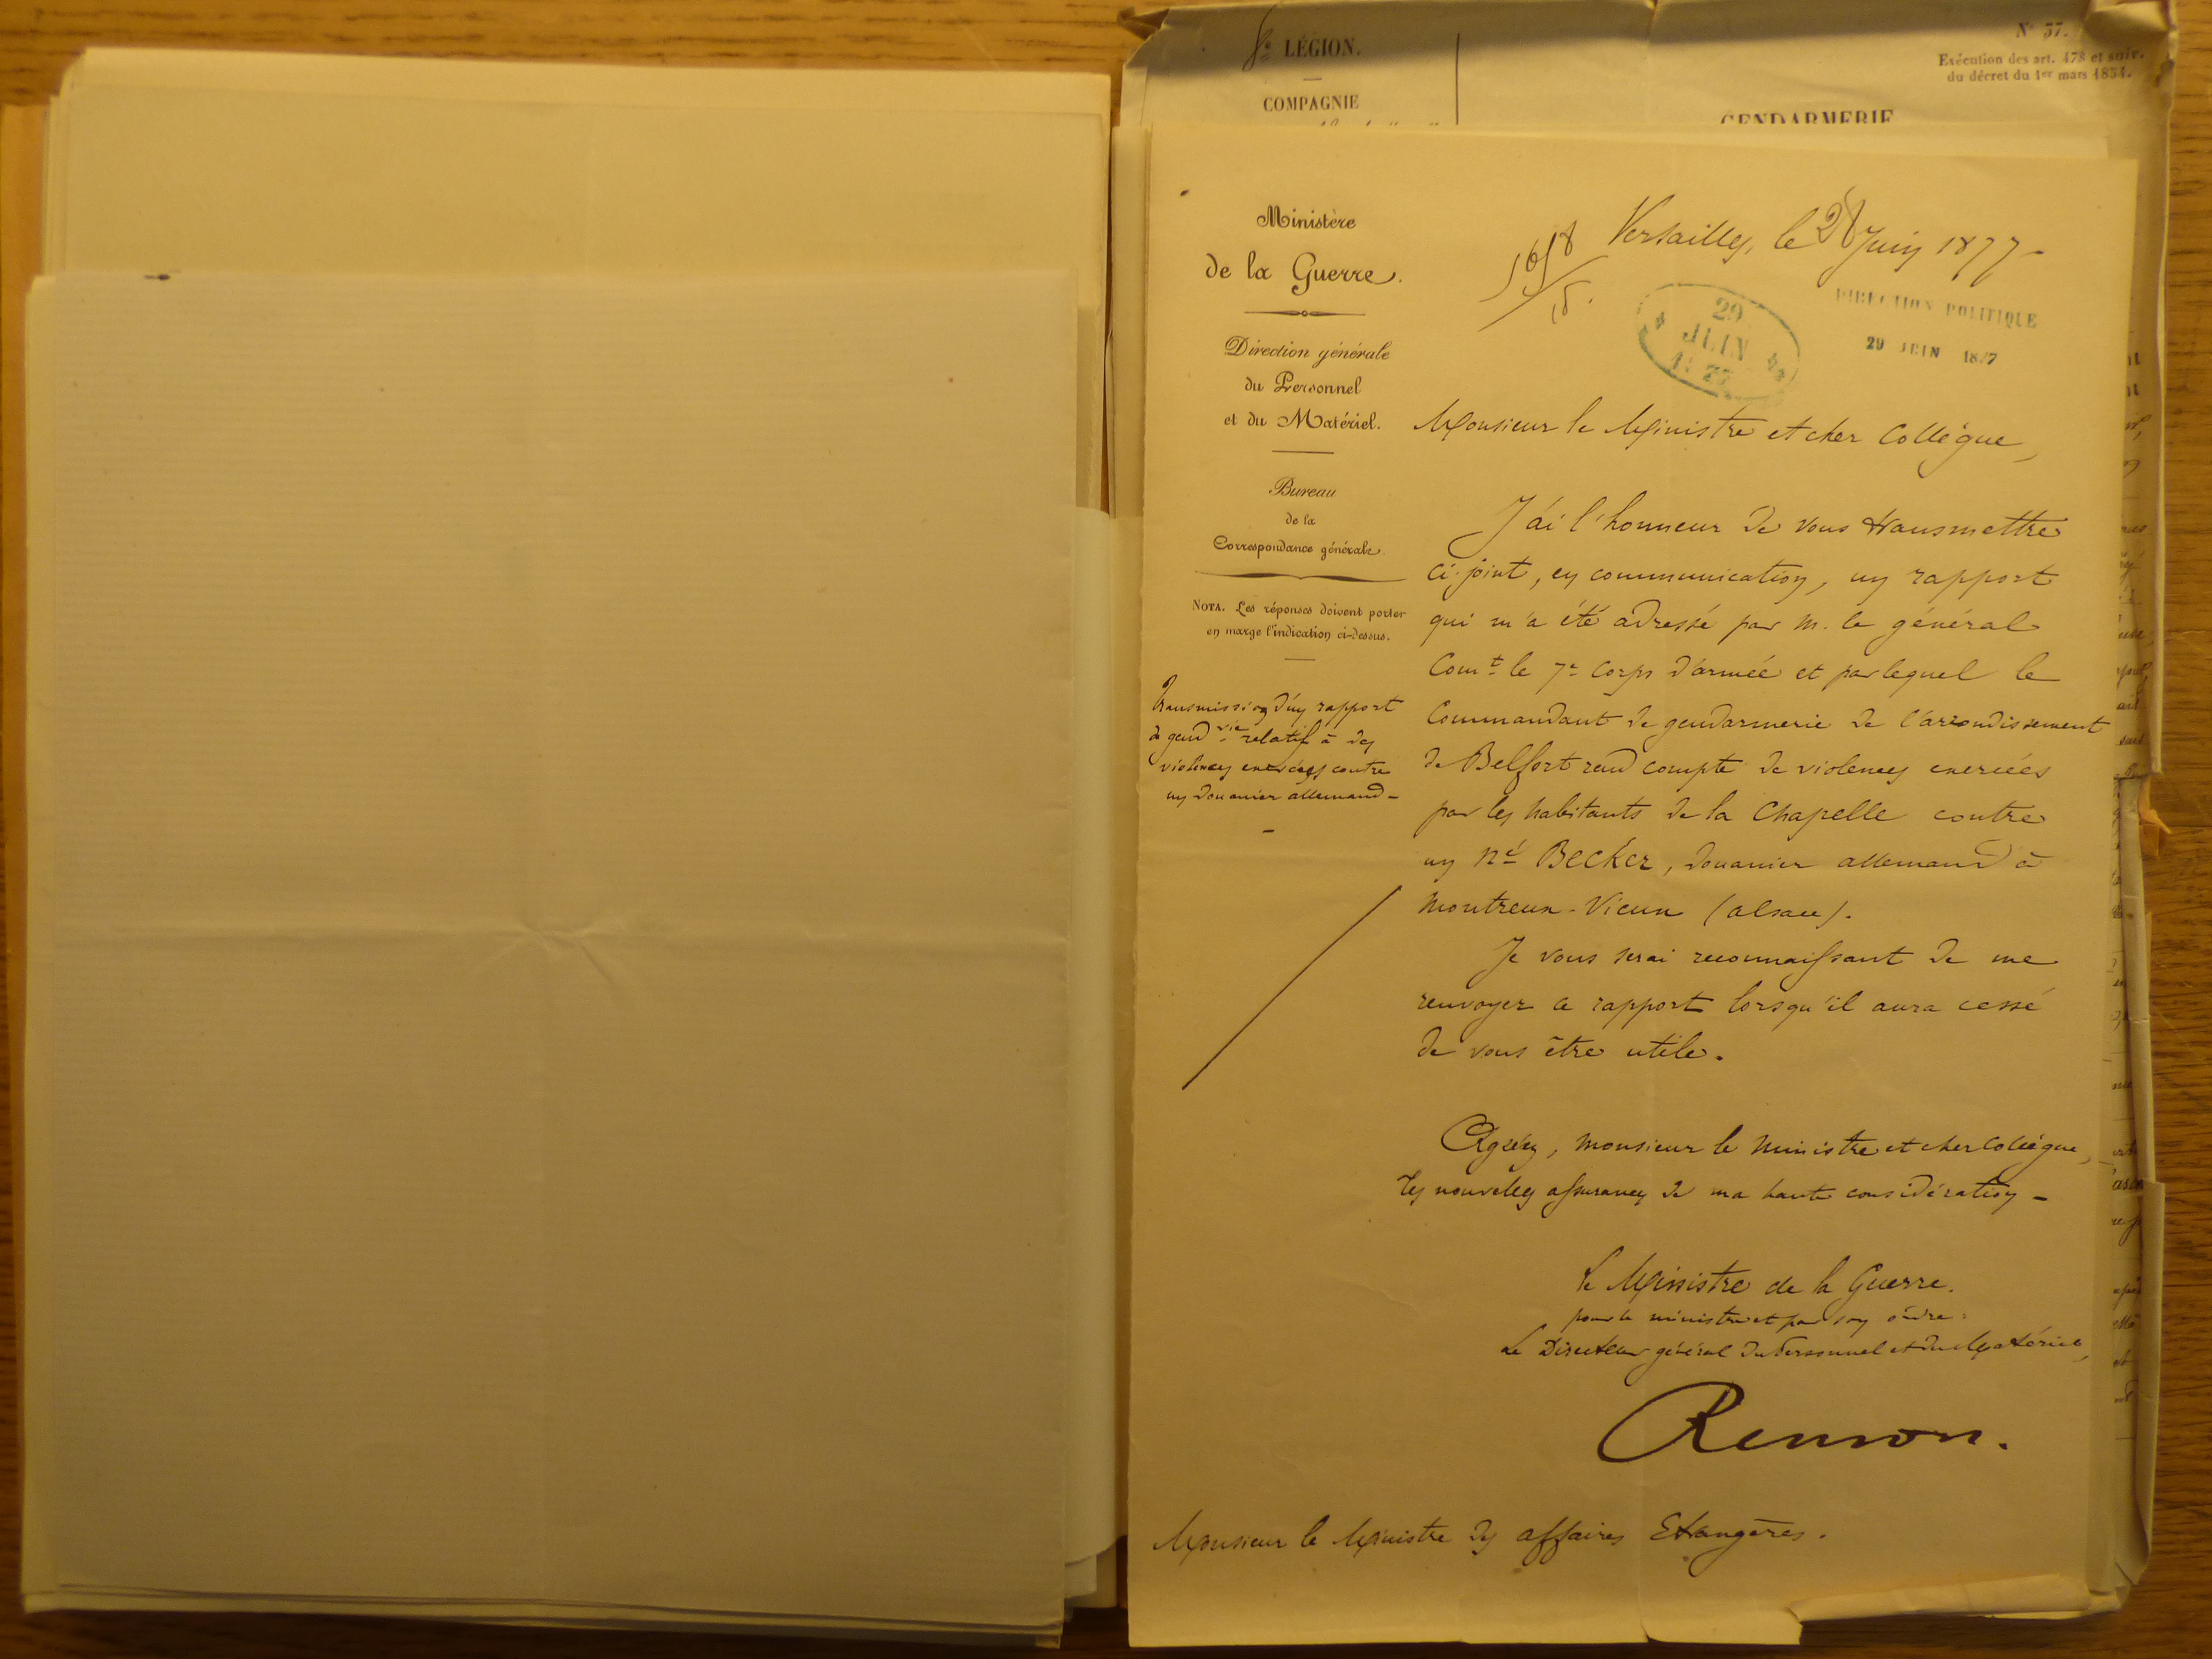 8e LÉGION.
COMPAGNIE
N° 37.
Exécution des art. 478 et suiv.
du décret du 1er mars 1854.
GENDARMERIE
Ministère
de la Guerre.
Direction générale
du Personnel
et du Matériel.
Bureau
de la
Correspondance générale
NOTA. Les réponses doivent porter
en marge l'indication ci-dessus.
Transmission d'un rapport
de gendrie relatif à des
violences exercées contre
un Douanier allemand -
Versailles, le 28 Juin 1877 -
29
JUIN
1877
DIRECTION POLITIQUE
29 JUIN 1877
Monsieur le Ministre et cher Collègue,
J'ai l'honneur de vous transmettre
ci-joint, en communication, un rapport
qui m'a été adressé par M. le général
Comt le 7e Corps d'armée et par lequel le
Commandant de gendarmerie de l'arrondissement
de Belfort rend compte de violences exercées
par les habitants de la Chapelle contre
un né Becker, Douanier allemand à
Montreux-Vieux (Alsace).
Je vous serai reconnaissant de me
renvoyer ce rapport lorsqu'il aura cessé
de vous être utile.
Agréez, Monsieur le Ministre et cher Collègue,
les nouvelles assurances de ma haute considération -
Le Ministre de la Guerre.
pour le ministre et par son ordre:
Le Directeur général du Personnel et du Matériel,
Renson.
Monsieur le Ministre des affaires Etrangères.